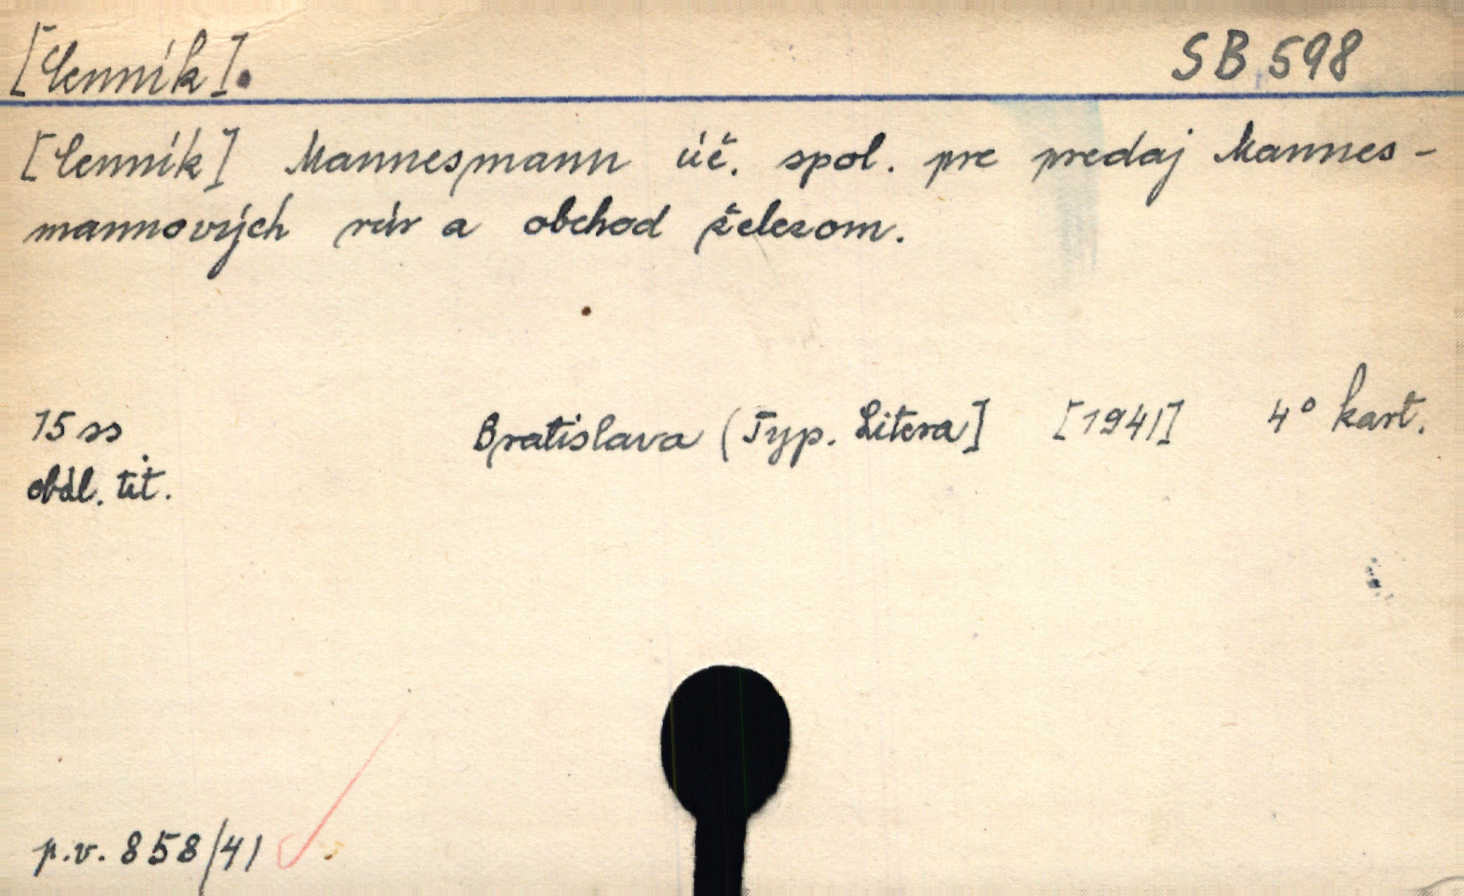 [Cenník]. SB 598
[Cenník] Mannesmann úč. spol. pre predaj Mannes-
mannových rúr a obchod železom.
15 ss Bratislava (Typ. Litera] [1941] 4° kart.
obál. tit.
p.v. 858/41